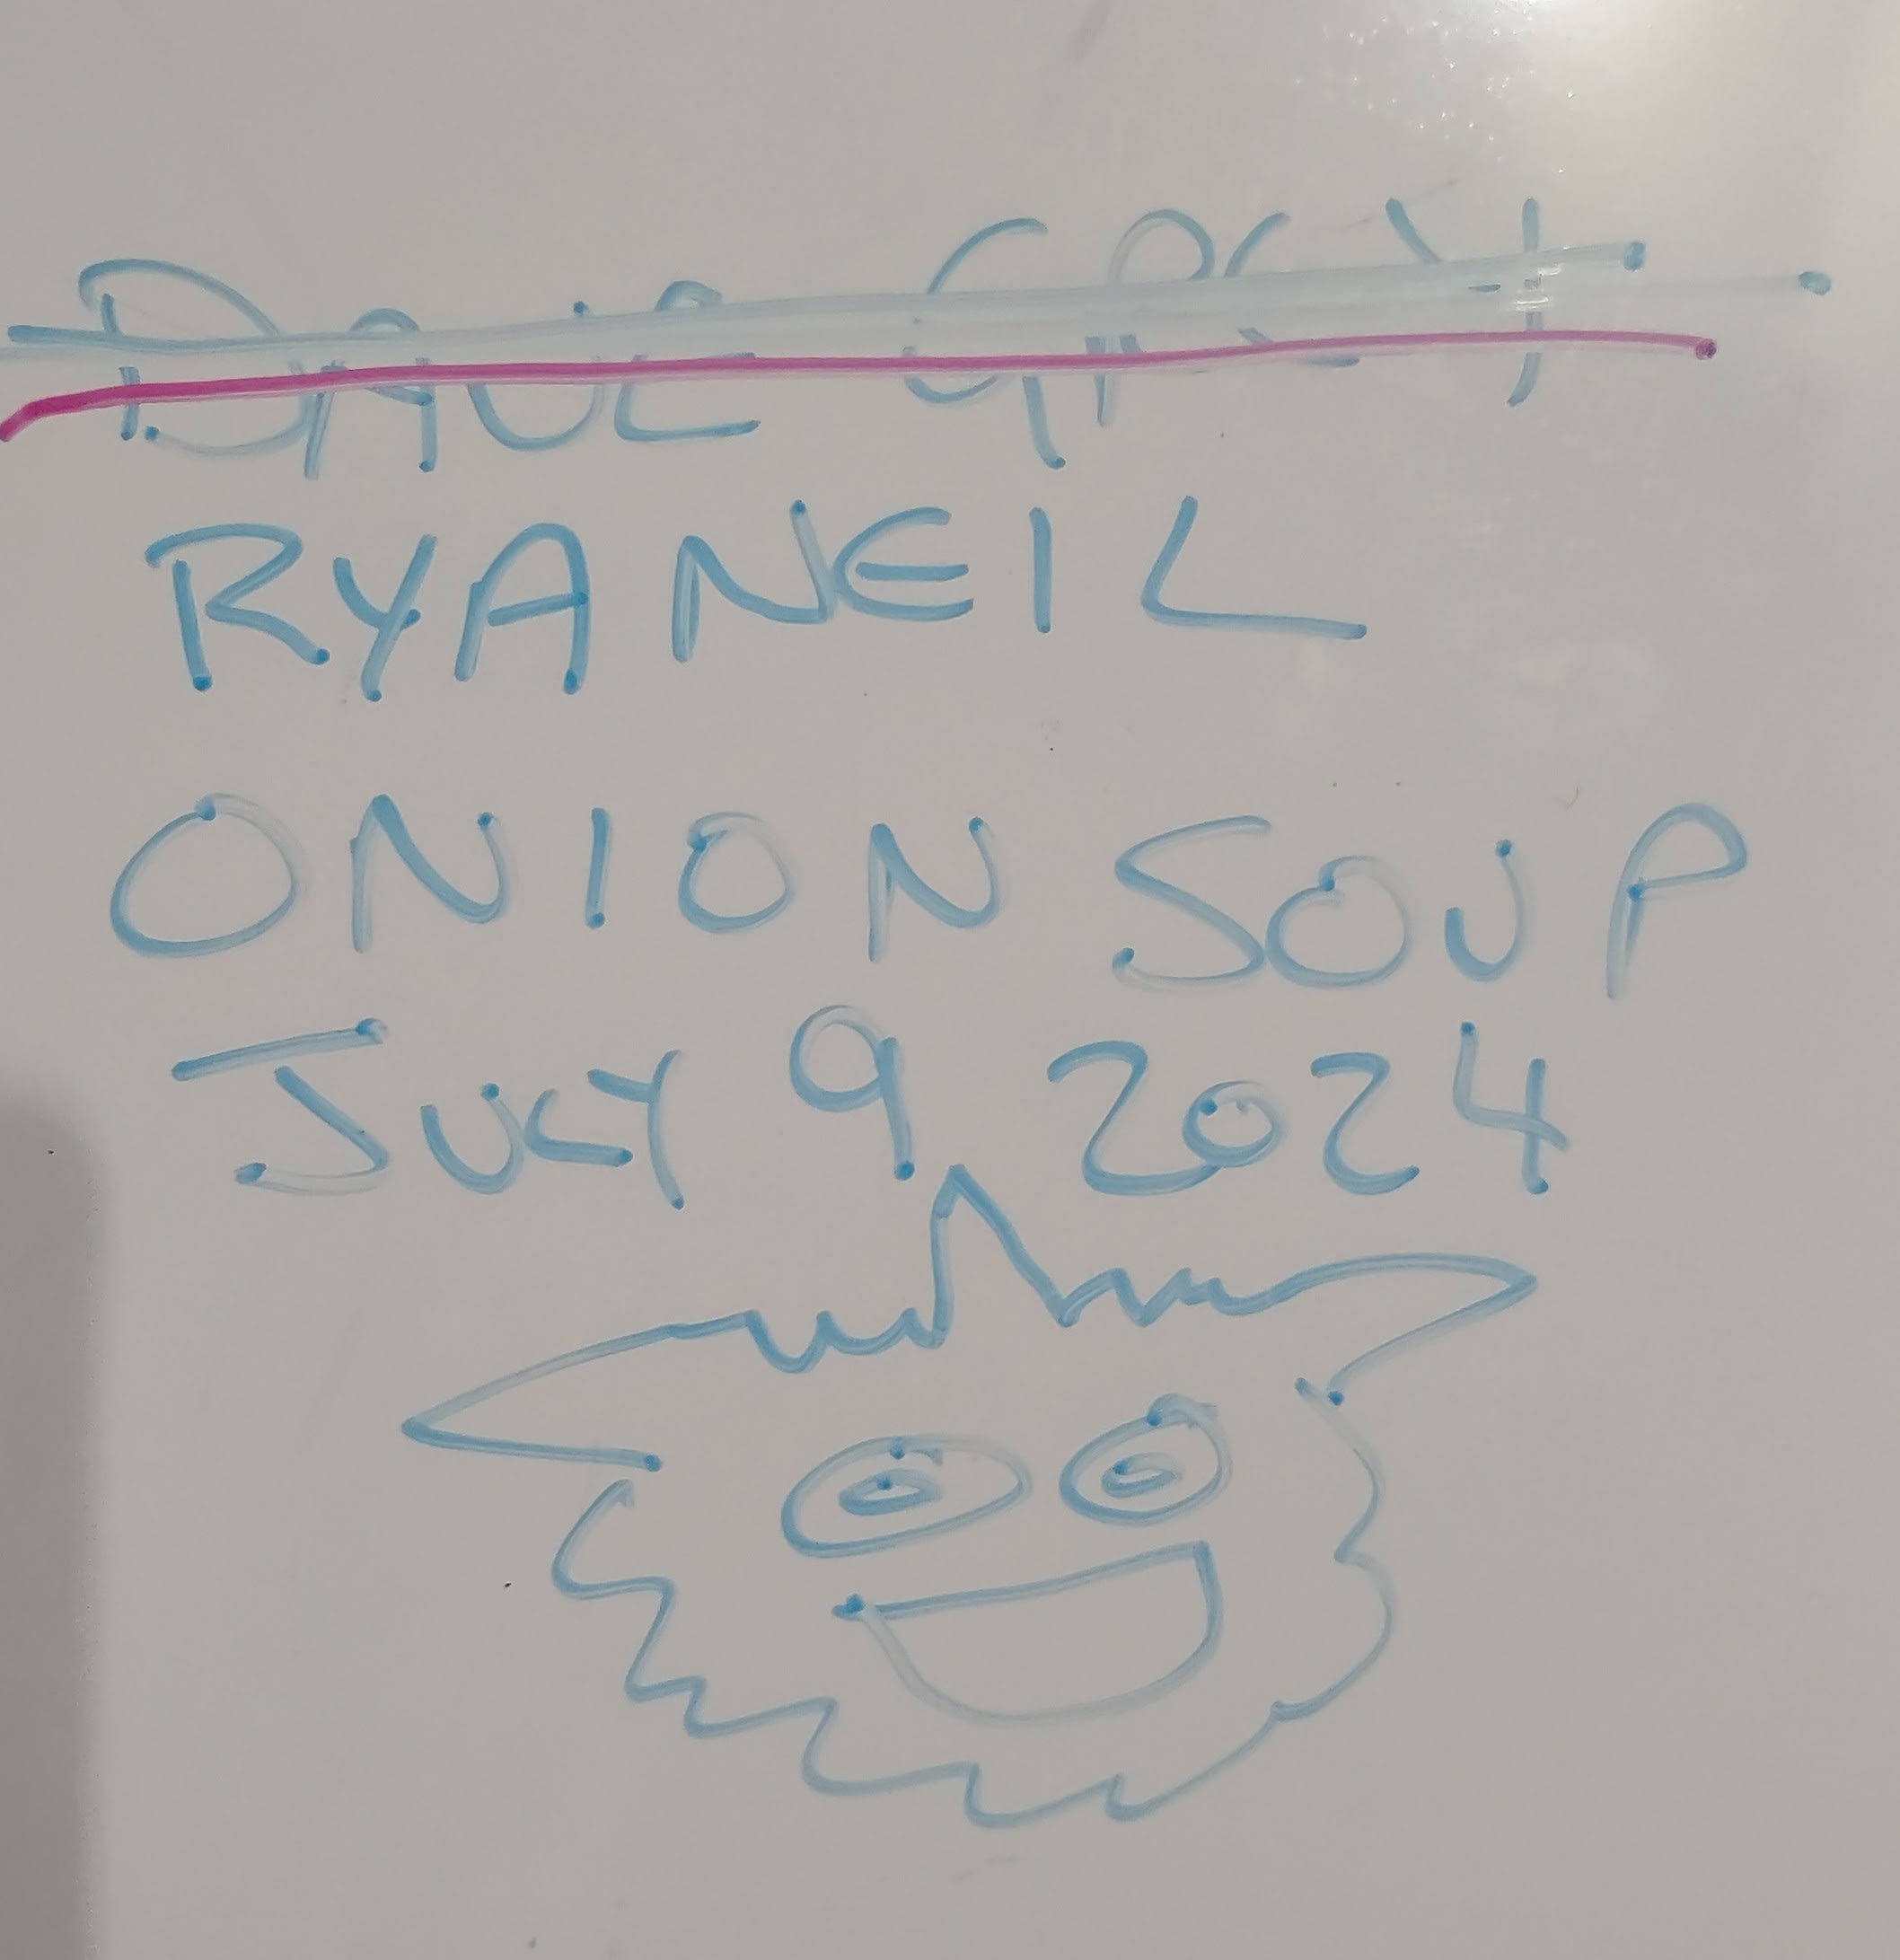 RYANEIL
ONION SOUP
JULY 9 2024